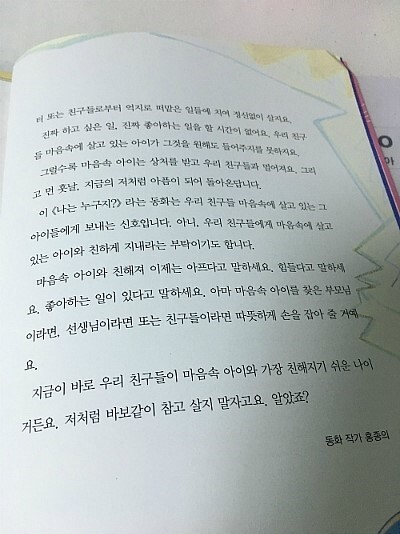 터 또는 친구들로부터 억지로 떠맡은 일들에 치여 정신없이 살지요.
진짜 하고 싶은 일, 진짜 좋아하는 일을 할 시간이 없어요. 우리 친구
들 마음속에 살고 있는 아이가 그것을 원해도 들어주지를 못하지요.
그럴수록 마음속 아이는 상처를 받고 우리 친구들과 멀어져요. 그리
고 먼 훗날, 지금의 저처럼 아픔이 되어 돌아온답니다.
이 《나는 누구지?》 라는 동화는 우리 친구들 마음속에 살고 있는 그
아이들에게 보내는 신호입니다. 아니, 우리 친구들에게 마음속에 살고
있는 아이와 친하게 지내라는 부탁이기도 합니다.
마음속 아이와 친해져 이제는 아프다고 말하세요. 힘들다고 말하세
요. 좋아하는 일이 있다고 말하세요. 아마 마음속 아이를 찾은 부모님
이라면, 선생님이라면 또는 친구들이라면 따뜻하게 손을 잡아 줄 거예
요.
지금이 바로 우리 친구들이 마음속 아이와 가장 친해지기 쉬운 나이
거든요. 저처럼 바보같이 참고 살지 말자고요. 알았죠?
동화 작가 홍종의